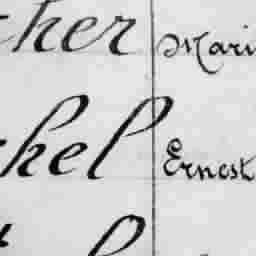 cher Mari
chel Ernest